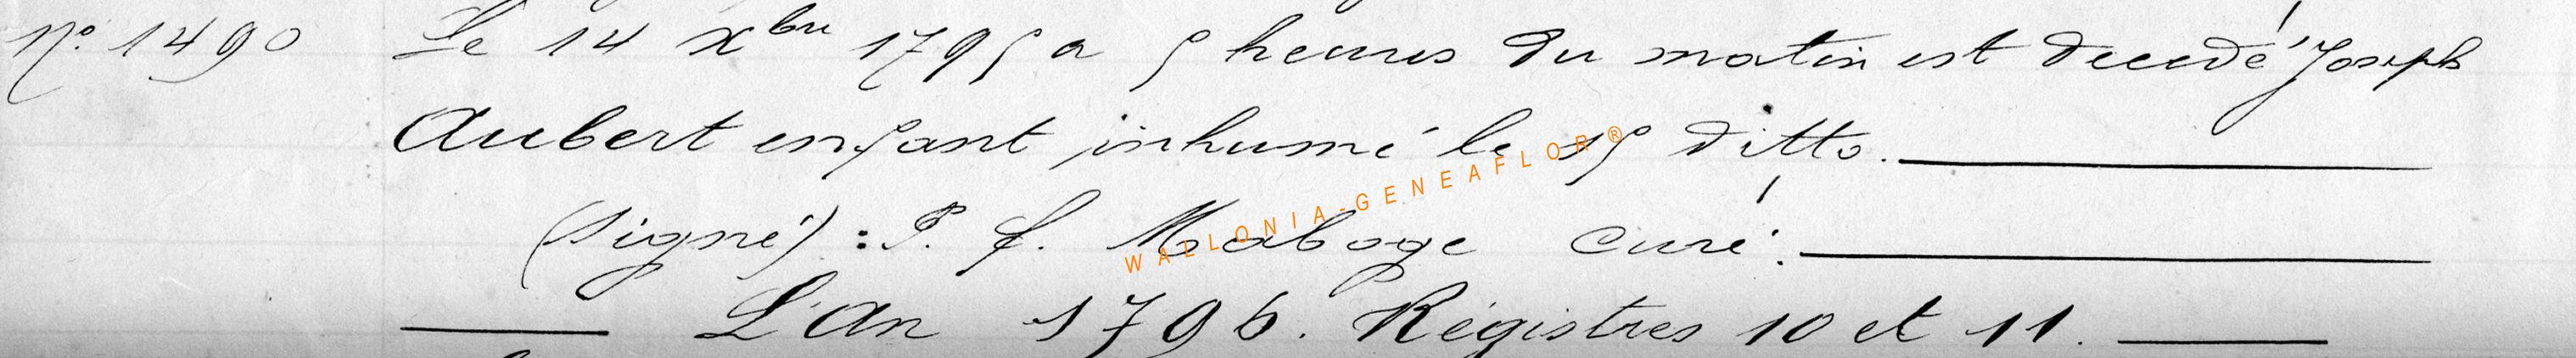 N° 1490 Le 14 Xbre 1795 a 5 heures du matin est decedé Joseph
Aubert enfant inhumé le 15 ditto.
(Signé) : P. f. Maboge curé.
WALLONIA-GENEAFLOR ®
L'An 1796. Régistres 10 et 11.